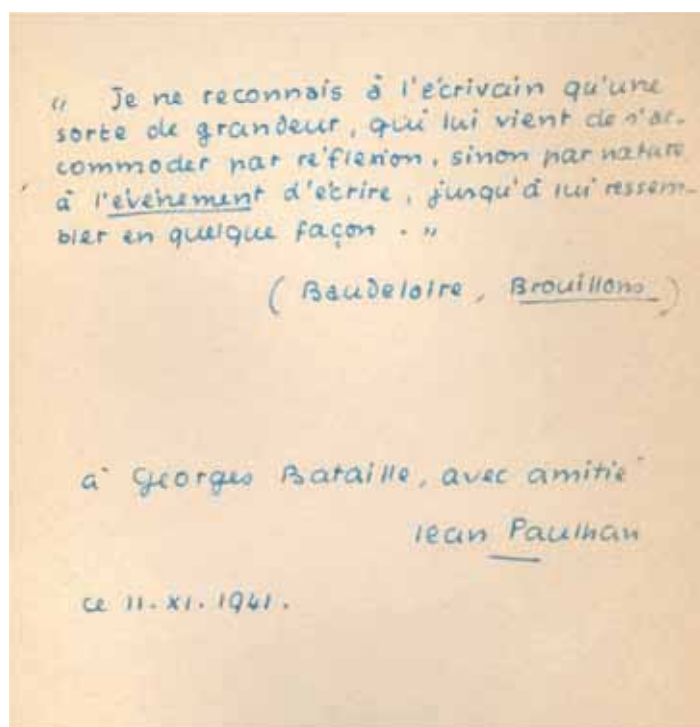 « Je ne reconnais à l'écrivain qu'une
sorte de grandeur, qui lui vient de s'ac-
commoder par réflexion, sinon par nature
à l'événement d'écrire, jusqu'à lui ressem-
bler en quelque façon. »
( Baudelaire, Brouillons )
à Georges Bataille, avec amitié
Jean Paulhan
ce 11. XI. 1941.